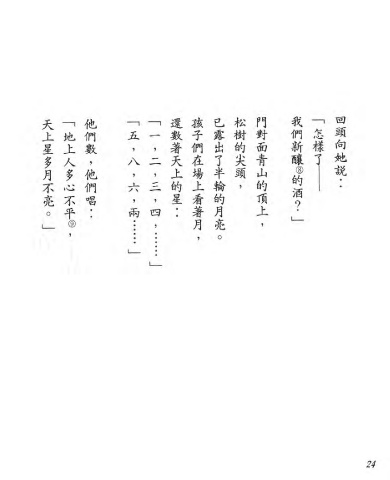 回頭向她說：
「怎樣了——
我們新釀⑧的酒？」
門對面青山的頂上，
松樹的尖頭，
已露出了半輪的月亮。
孩子們在場上看著月，
還數著天上的星：
「一，二，三，四，……」
「五，八，六，兩……」
他們數，他們唱：
「地上人多心不平⑨，
天上星多月不亮。」
24